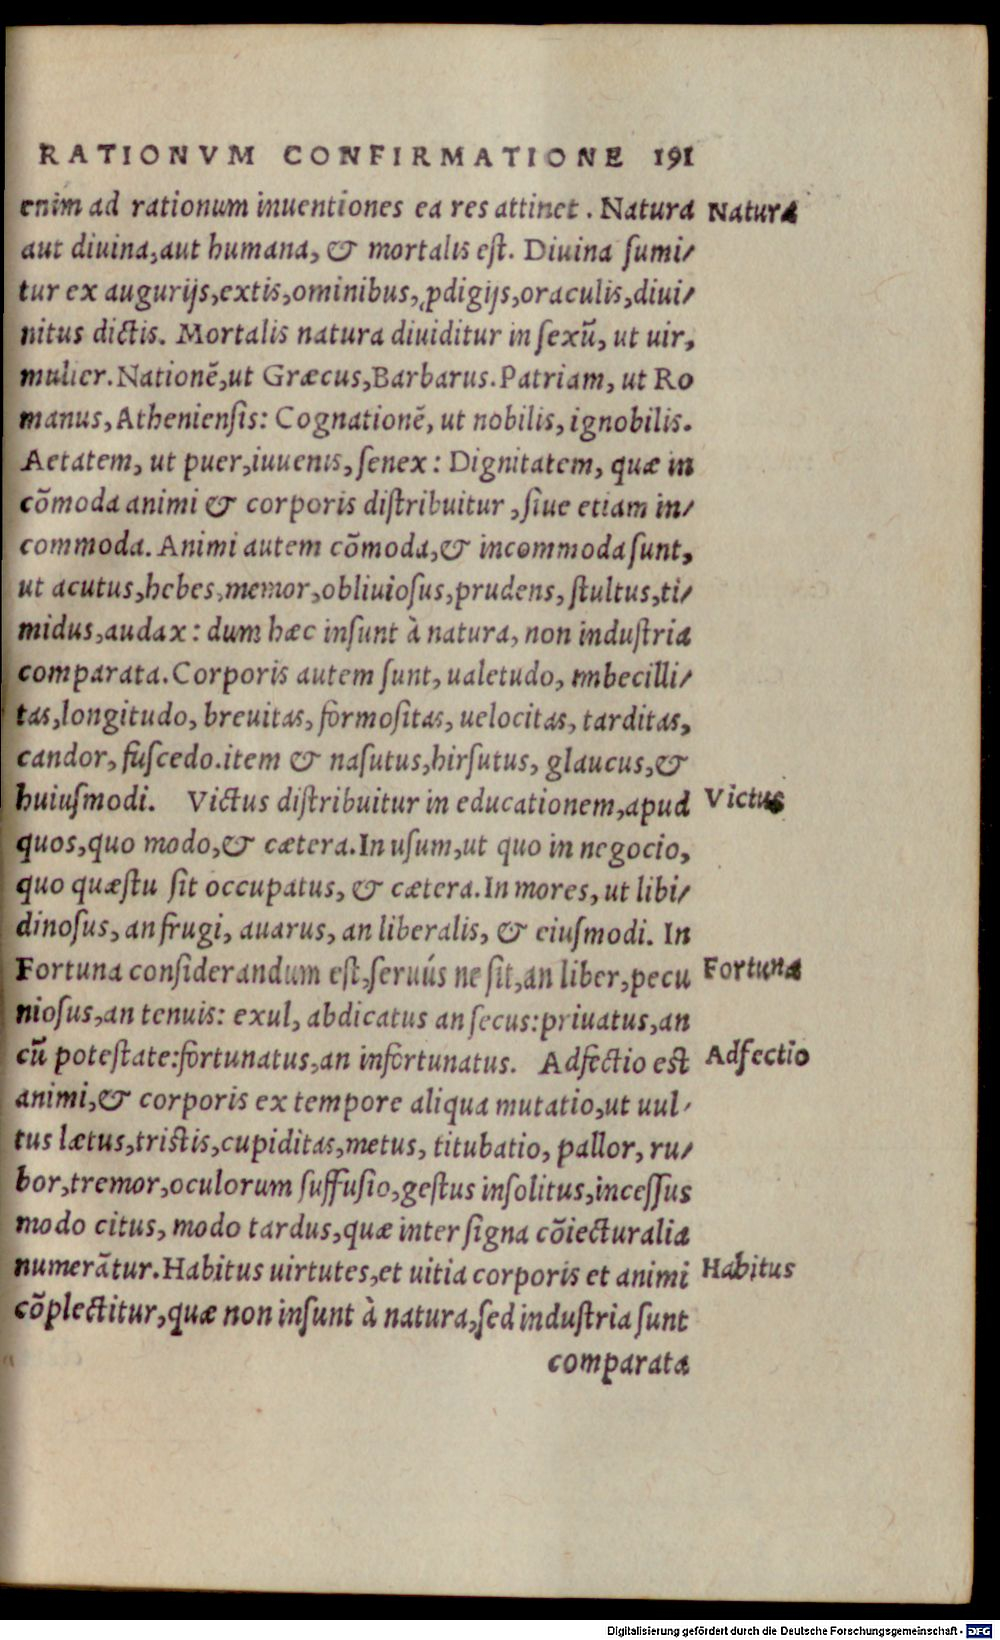 RATIONVM CONFIRMATIONE 191
enim ad rationum inuentiones ea res attinet . Natura
Natura
aut diuina,aut humana, & mortalis eſt. Diuina ſumi/
tur ex augurijs,extis,ominibus,ꝓdigijs,oraculis,diui/
nitus dictis. Mortalis natura diuiditur in ſexũ, ut uir,
mulier.Nationẽ,ut Græcus,Barbarus.Patriam, ut Ro
manus,Athenienſis: Cognationẽ, ut nobilis, ignobilis.
Aetatem, ut puer,iuuenis, ſenex: Dignitatem, quæ in
cõmoda animi & corporis diſtribuitur ,ſiue etiam in/
commoda. Animi autem cõmoda,& incommoda ſunt,
ut acutus,hebes,memor,obliuioſus,prudens, ſtultus,ti/
midus,audax: dum hæc inſunt à natura, non induſtria
comparata.Corporis autem ſunt, ualetudo, imbecilli/
tas,longitudo, breuitas, formoſitas, uelocitas, tarditas,
candor, fuſcedo.item & naſutus,hirſutus, glaucus,&
huiuſmodi. Victus diſtribuitur in educationem,apud
Victus
quos,quo modo,& cætera.In uſum,ut quo in negocio,
quo quæſtu ſit occupatus, & cætera.In mores, ut libi/
dinoſus, an frugi, auarus, an liberalis, & eiuſmodi. In
Fortuna conſiderandum eſt,ſeruús ne ſit,an liber,pecu
Fortuna
nioſus,an tenuis: exul, abdicatus an ſecus:priuatus,an
cũ poteſtate:fortunatus,an infortunatus. Adfectio eſt
Adfectio
animi,& corporis ex tempore aliqua mutatio,ut uul/
tus lætus,triſtis,cupiditas,metus, titubatio, pallor, ru/
bor,tremor,oculorum ſuffuſio,geſtus inſolitus,inceſſus
modo citus, modo tardus,quæ inter ſigna cõiecturalia
numerãtur.Habitus uirtutes,et uitia corporis et animi
Habitus
cõplectitur,quæ non inſunt à natura,ſed induſtria ſunt
comparata
Digitalisierung gefördert durch die Deutsche Forschungsgemeinschaft - DFG